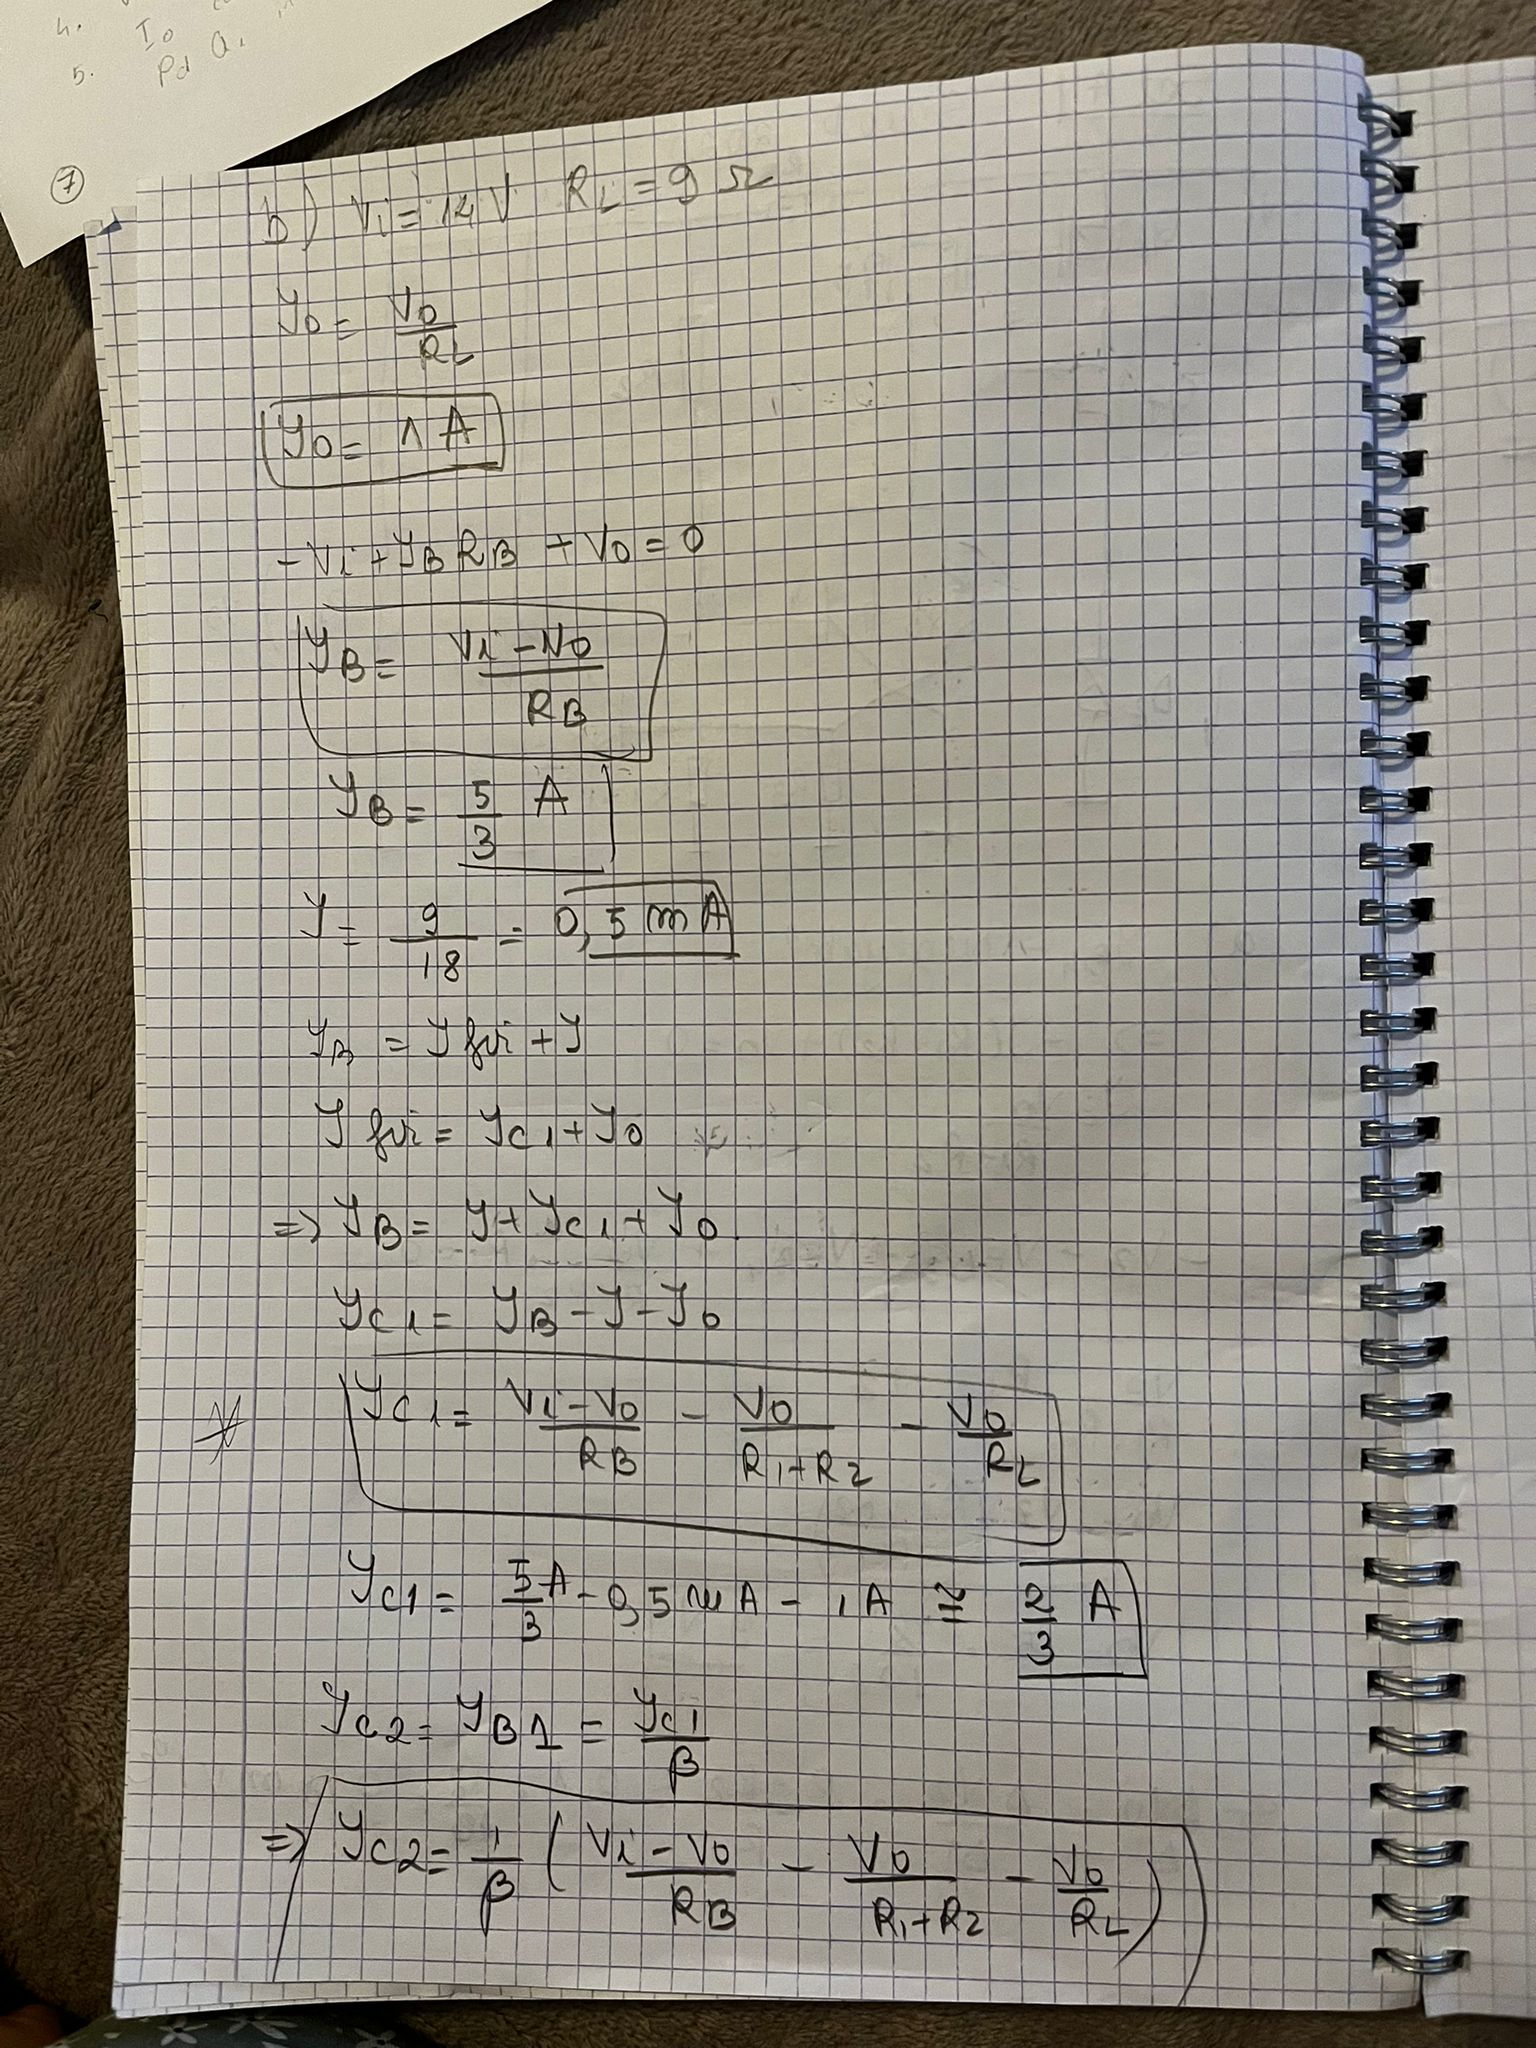 4.
I0
5. Pd Q1
7
b) Vi = 14 V RL = 9 Ω
I0 = V0/RL
I0 = 1 A
-Vi + IB RB + V0 = 0
IB = (Vi - V0)/RB
IB = 5/3 A
I = 9/18 = 0,5 mA
IB = I + I
I = IC1 + I0
=> IB = I + IC1 + I0
IC1 = IB - I - I0
IC1 = (Vi - V0)/RB - V0/(R1+R2) - V0/RL
IC1 = 5/3 A - 0,5 mA - 1A ≅ 2/3 A
IC2 = IB1 = IC1/β
=> IC2 = 1/β ( (Vi - V0)/RB - V0/(R1+R2) - V0/RL )